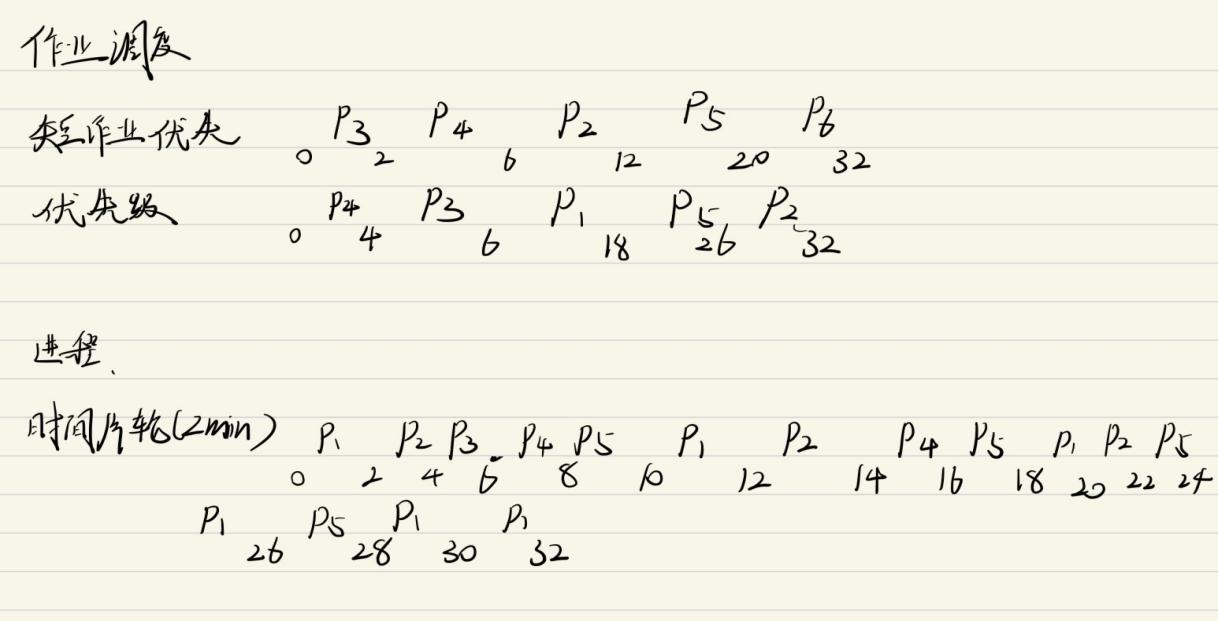 作业调度
短作业优先 P3 P4 P2 P5 P6
0 2 6 12 20 32
优先级 P4 P3 P1 P5 P2
0 4 6 18 26 32
进程、
时间片轮(2min) P1 P2 P3 P4 P5 P1 P2 P4 P5 P1 P2 P5
0 2 4 6 8 10 12 14 16 18 20 22 24
P1 P5 P1 P1
26 28 30 32